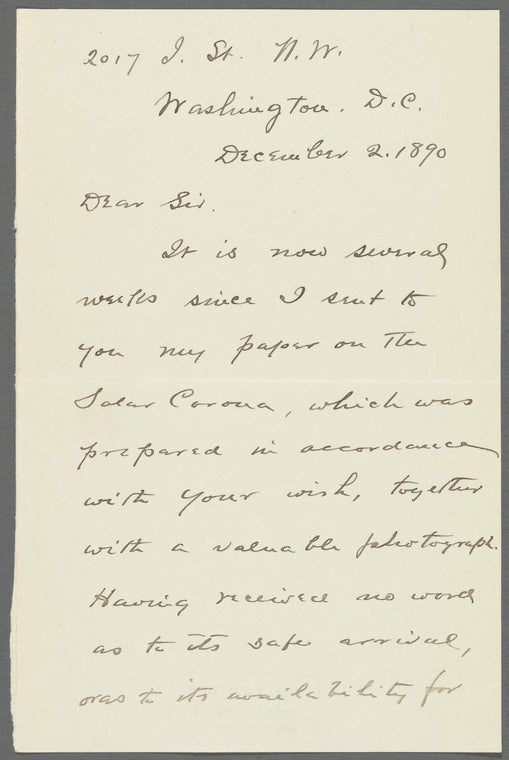 2017 I. St. N.W.
Washington. D.C.
December 2. 1890
Dear Sir.
It is now several
weeks since I sent to
you my paper on the
Solar Corona, which was
prepared in accordance
with your wish, together
with a valuable photograph.
Having received no word
as to its safe arrival,
or as to its availability for